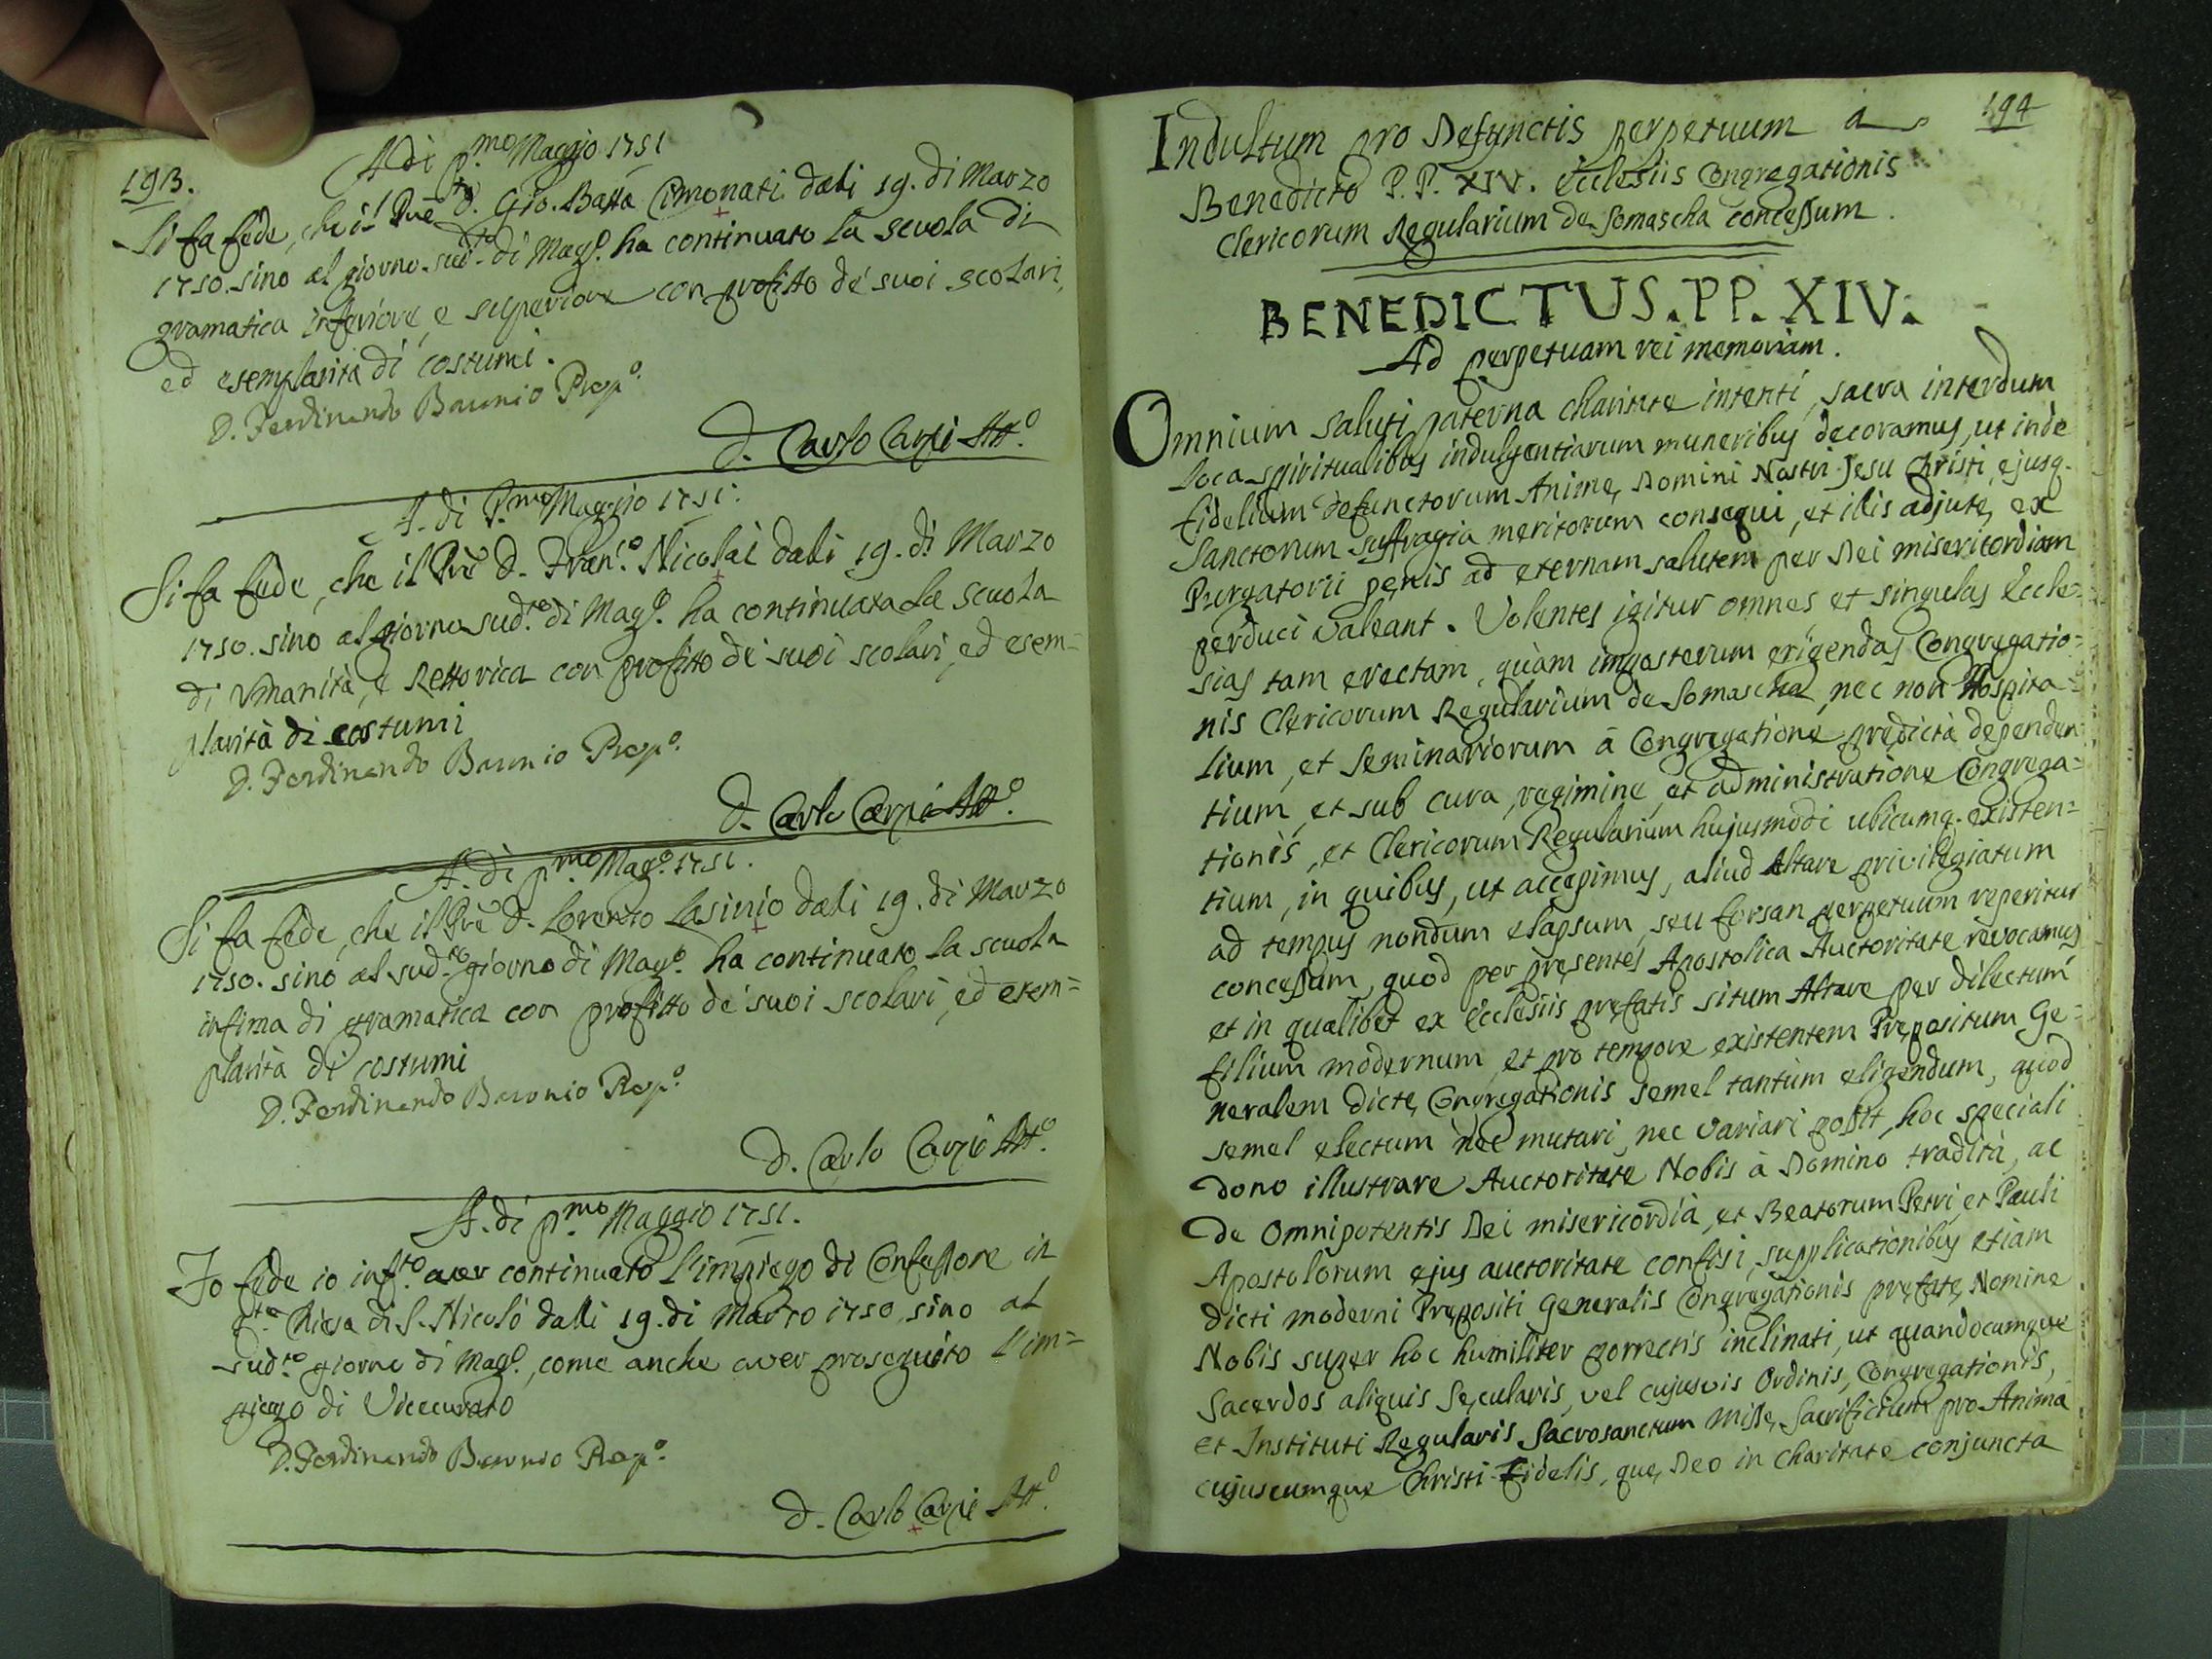 193.
A di p.mo Maggio 1751
Si fa fede, che il Pre D. Gio. Batta Cimonati dalli 19. di Marzo
1750. sino al giorno sud.to di Mag.o ha continuato la scuola di
gramatica inferiore, e superiore con profitto de' suoi scolari,
ed esemplarità di costumi.
D. Ferdinando Baronio Prep.o
D. Carlo Carpi Att.o
A. di P.mo Maggio 1751.
Si fa fede, che il Pre D. Fran.o Nicolai dalli 19. di Marzo
1750. sino al giorno sud.to di Mag.o ha continuata la scuola
di Umanità, e Rettorica con profitto de' suoi scolari, ed esem=
plarità di costumi
D. Ferdinando Baronio Prep.o
D. Carlo Carpi Att.o
A. di p.mo Mag.o 1751.
Si fa fede, che il Pre D. Lorenzo Lasinio dalli 19. di Marzo
1750. sino al sud.to giorno di Mag.o ha continuato la scuola
infima di gramatica con profitto de' suoi scolari, ed esem=
plarità di costumi
D. Ferdinando Baronio Prep.o
D. Carlo Carpi Att.o
A. di p.mo Maggio 1751.
Fo fede io inf.to aver continuato l'impiego di Confessore in
q.ta Chiesa di S. Nicolò dalli 19. di Marzo 1750, sino al
sud.to giorno di Mag.o, come anche aver proseguito l'im=
piego di Vicecurato
D. Ferdinando Baronio Prep.o
D. Carlo Carpi Att.o
194
Indultum pro Defunctis perpetuum a
Benedicto P.P. XIV. Ecclesiis Congregationis
Clericorum Regularium de Somascha concessum.
BENEDICTUS. PP. XIV.
Ad perpetuam rei memoriam.
Omnium saluti paterna charitate intenti, sacra interdum
loca spiritualibus indulgentiarum muneribus decoramus, ut inde
fidelium defunctorum Animę Domini Nostri Jesu Christi, ejusq.
Sanctorum suffragia meritorum consequi, et illis adjutę ex
Purgatorii pęnis ad ęternam salutem per Dei misericordiam
perduci valeant. Volentes igitur omnes, et singulas Eccle=
sias tam erectam, quàm imposterum erigendas Congregatio=
nis Clericorum Regularium de Somascha, nec non Hospita=
lium, et Seminariorum à Congregatione prędictà dependen=
tium, et sub cura, regimine, et administratione Congrega=
tionis, et Clericorum Regularium hujusmodi ubicumq. existen=
tium, in quibus, ut accepimus, aliud Altare privilegiatum
ad tempus nondum elapsum, seu forsan perpetuum reperitur
concessum, quod per pręsentes Apostolica Auctoritate revocamus
et in qualibet ex Ecclesiis pręfatis situm Altare per dilectum
filium modernum, et pro tempore existentem Prępositum Ge=
neralem dictę Congregationis semel tantùm eligendum, quod
semel electum nec mutari, nec variari possit, hoc speciali
dono illustrare Auctoritate Nobis à Domino tradità, ac
de Omnipotentis Dei misericordià, et Beatorum Petri, et Pauli
Apostolorum ejus auctoritate confisi, supplicationibus etiam
dicti moderni Prępositi Generalis Congregationis pręfatę Nomine
Nobis super hoc humiliter porrectis inclinati, ut quandocumque
Sacerdos aliquis Sęcularis, vel cujusvis Ordinis, Congregationis,
et Instituti Regularis Sacrosanctum Missę Sacrificium pro Animà
cujuscumque Christi Fidelis, quę Deo in Charitate conjuncta